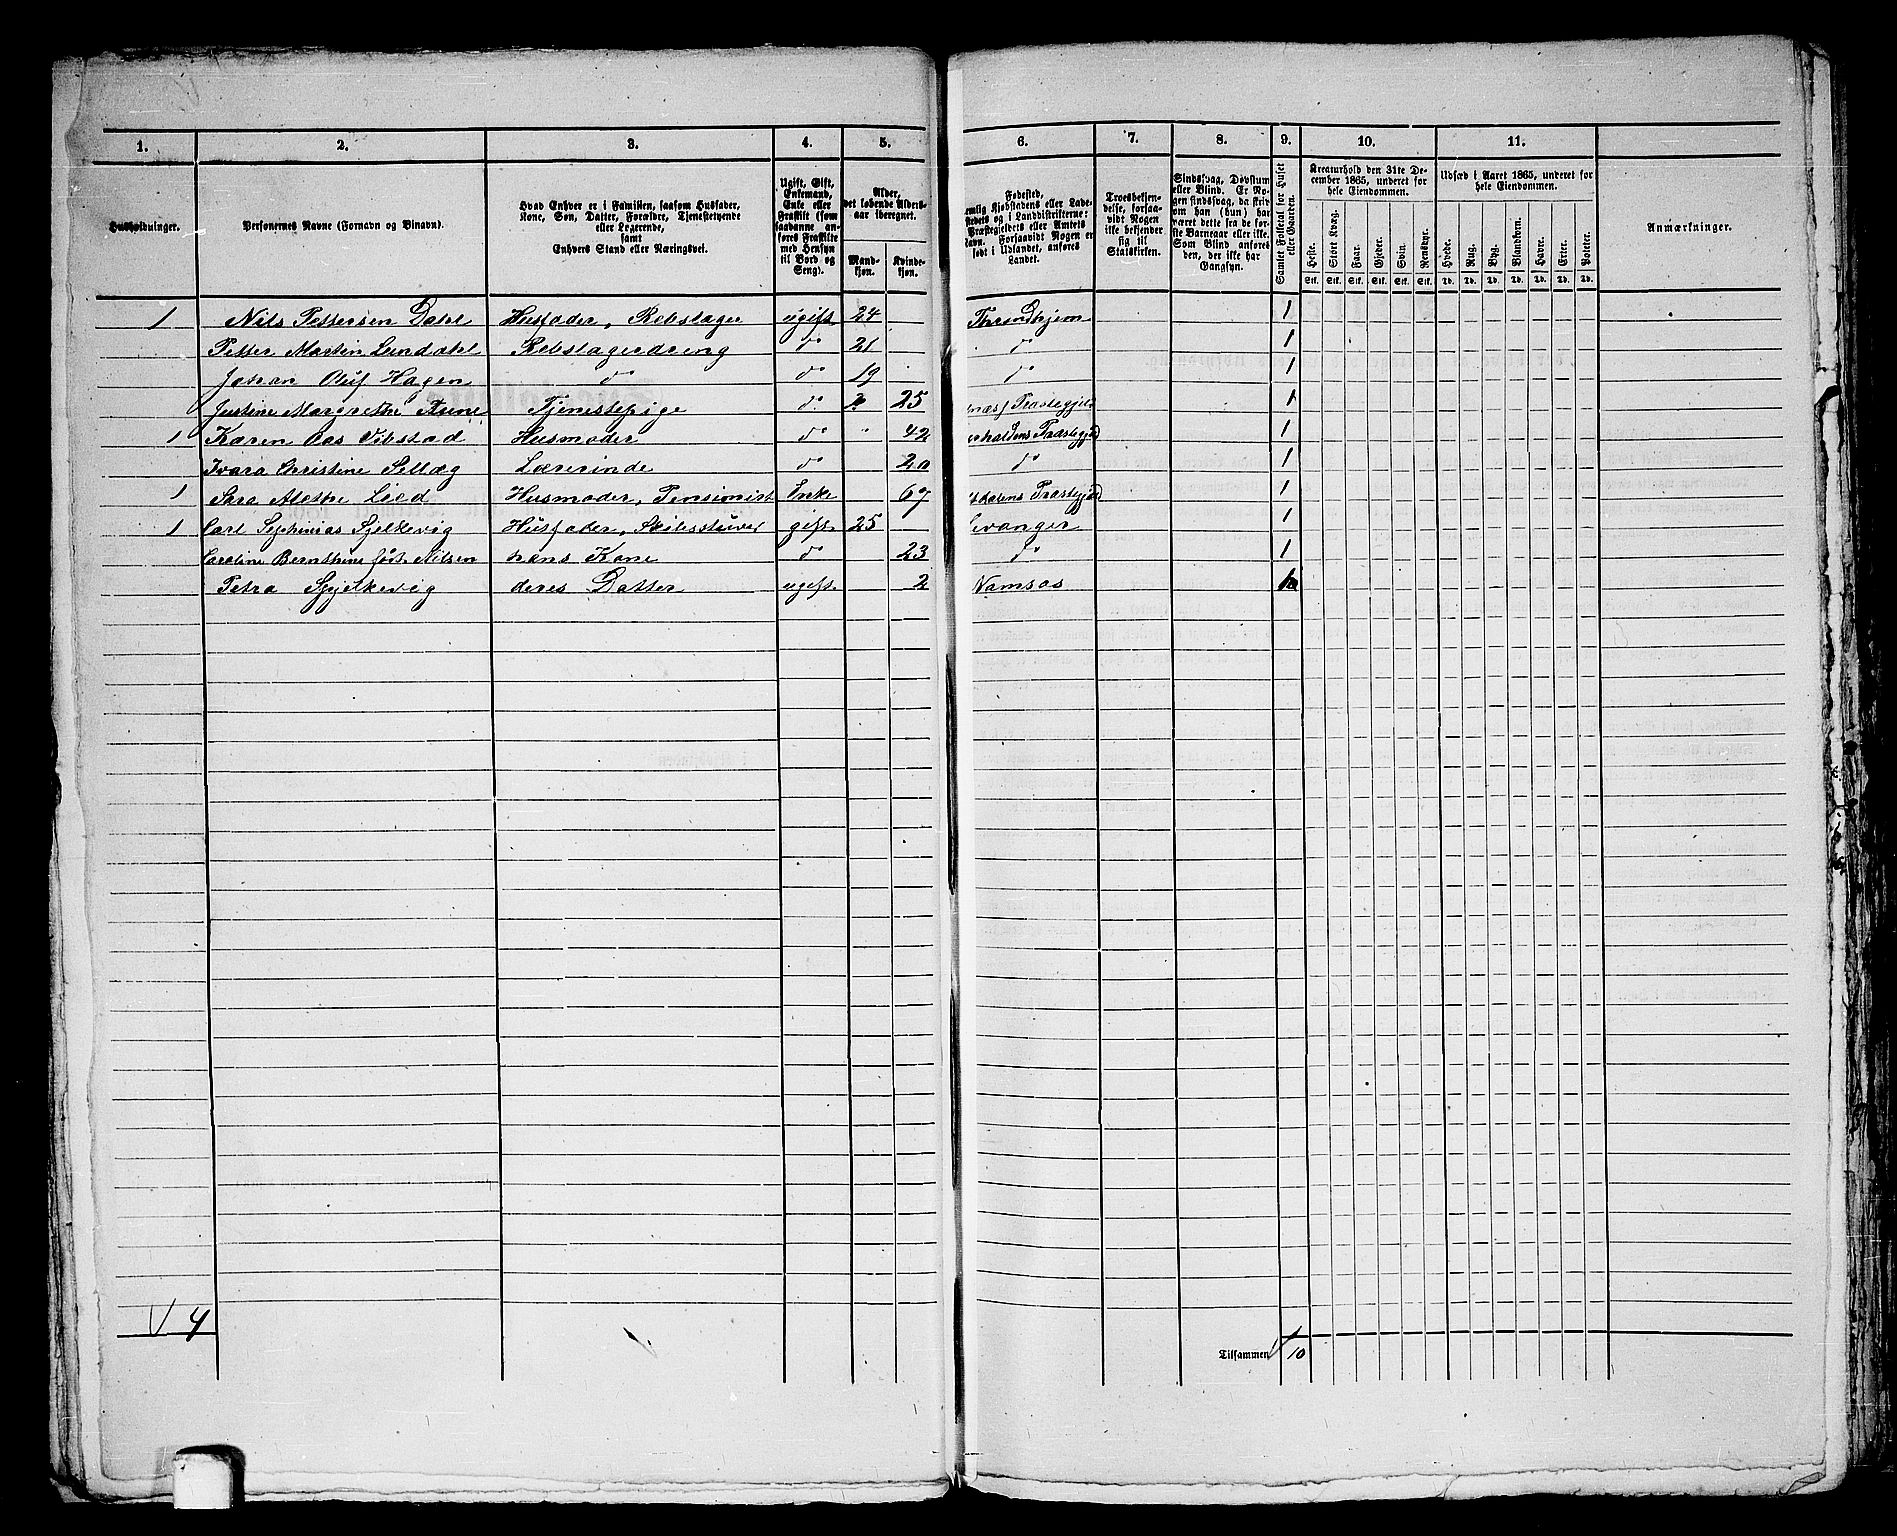 1. 2. 3. 4. 5. 6. 7. 8. 9. 10. 11.
Husholdninger.
Personernes Navne (Fornavn og Binavn).
Hvad Enhver er i Familien, saasom Husfader,
Kone, Søn, Datter, Forældre, Tjenestetyende
eller Logerende,
samt
Enhvers Stand eller Næringsvei.
Ugift, Gift,
Enkemand,
Enke eller
Fraskilt (som
saadanne an-
føres Fraskilte
med Hensyn
til Bord og
Seng).
Alder,
det løbende Alders-
aar iberegnet.
Mand-
kjøn.
Kvinde-
kjøn.
Fødested,
Forsaavidt Nogen er
født i Udlandet, anføres
Landet.
Troesbekjen-
delse, forsaa-
vidt Nogen
ikke bekjender
sig til
Statskirken.
Sindssvag, Døvstum
eller Blind. Er No-
gen sindssvag, da skriv
om han (hun) har
været dette fra de før-
ste Barneaar eller ikke.
Som Blind anføres
den, der ikke har
Gangsyn.
Samlet Folketal for Huset
eller Gaarden.
Kreaturhold den 31te De-
cember 1865, underet for
hele Eiendommen.
Heste. Stort Kvæg. Faar. Gjeder. Svin. Rensdyr.
Stk. Stk. Stk. Stk. Stk. Stk.
Udsæd i Aaret 1865, underet for
hele Eiendommen.
Hvede. Rug. Byg. Blandkorn. Havre. Erter. Poteter.
Td. Td. Td. Td. Td. Td. Td.
Anmærkninger.
1 Nils Pettersen Dahl Husfader, Rebslager ugift 24 Throndhjem 1
Petter Martin Lundahl Rebslagerdreng do 21 do 1
Johan Oluf Hagen do do 19 do 1
Justine Margrethe Aune Tjenestepige do 25 næs Præstegjeld 1
1 Karen Aas Vibstad Husmoder do 42 erhaldens Præstegjeld 1
Ivara Christine Sellæg Lærerinde do 20 do 1
1 Sara Alethe Lied Husmoder, Pensionist Enke 67 dalens Præstegjeld 1
1 Carl Sephanias Sjelkevig Husfader, Skibsstuver gift 25 Levanger 1
Caroline Bernthine født Nilsen hans Kone do 23 do 1
Petra Sjelkevig deres Datter ugift 2 Namsos 1
4
Tilsammen 10